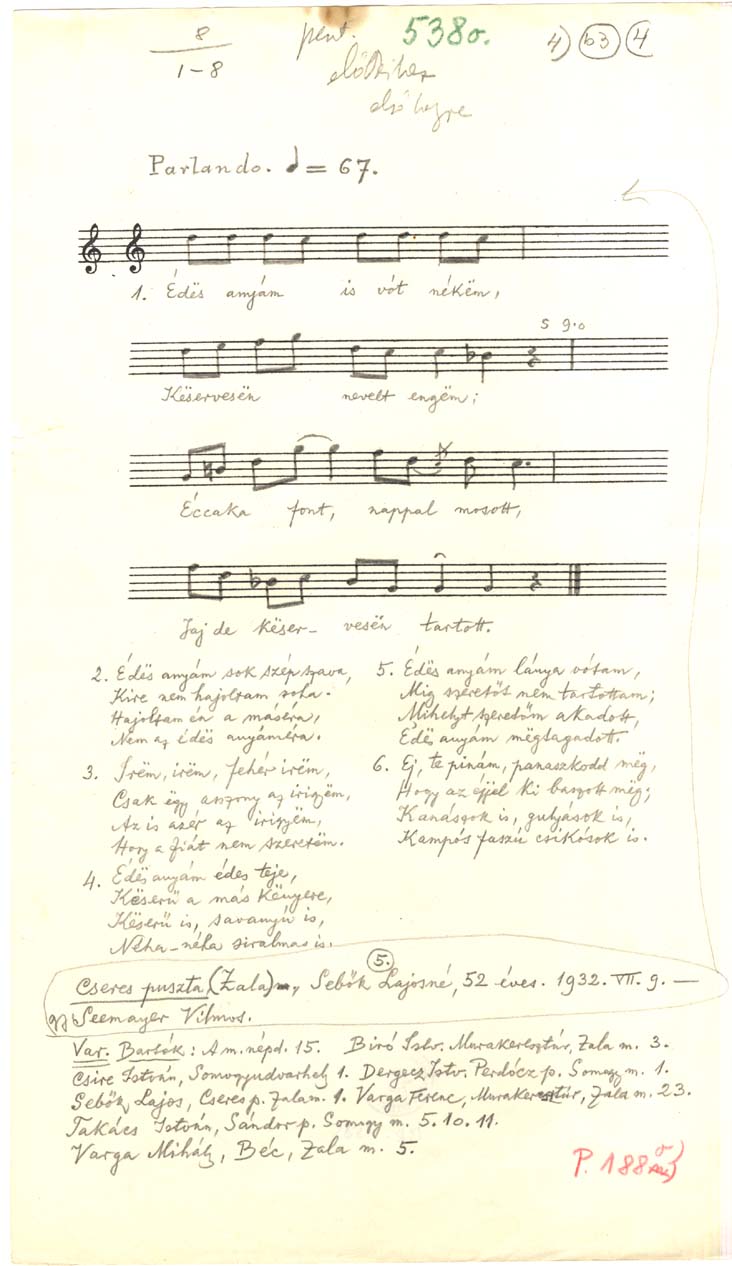 8
1-8
pent. 538o. 4) b3 4
első helyre
Parlando. = 67.
1. Édës anyám is vót nékëm,
5 9.o
Késërvesën nevelt engëm;
Éccaka font, nappal mosott,
Jaj de késër- vesën tartott.
2. Édës anyám sok szép szava,
Kire nem hajoltam soha.
Hajoltam én a máséra,
Nem az édës anyáméra.
3. Irëm, irëm, fehér irëm,
Csak ëgy asszony az irigyëm,
Az is azér az irigyëm,
Hogy a fiát nem szeretëm.
4. Édës anyám édes teje,
Késërü a más kënyere,
Késërü is, savanyú is,
Néha-néha siralmas is.
5. Édës anyám lánya vótam,
Mig szeretőt nem tartottam;
Mihelyt szeretőm akadott,
Édës anyám mëgtagadott.
6. Ej, te pinám, panaszkodd mëg,
Hogy az éjjel ki baszott mëg;
Kanászok is, gulyások is,
Kampós faszú csikósok is.
5.
Cseres puszta (Zala), Sebők Lajosné, 52 éves. 1932. VII. 9. —
gy Seemayer Vilmos.
Var. Bartók: A m. népd. 15. Biró Istv. Murakeresztúr, Zala m. 3.
Csire István, Somogyudvarhely 1. Dergecz Istv. Perdócz p. Somogy m. 1.
Sebők Lajos, Cseres p. Zala m. 1. Varga Ferenc, Murakeresztúr, Zala m. 23.
Takács István, Sándor p. Somogy m. 5. 10. 11.
Varga Mihály, Béc, Zala m. 5.
P. 188